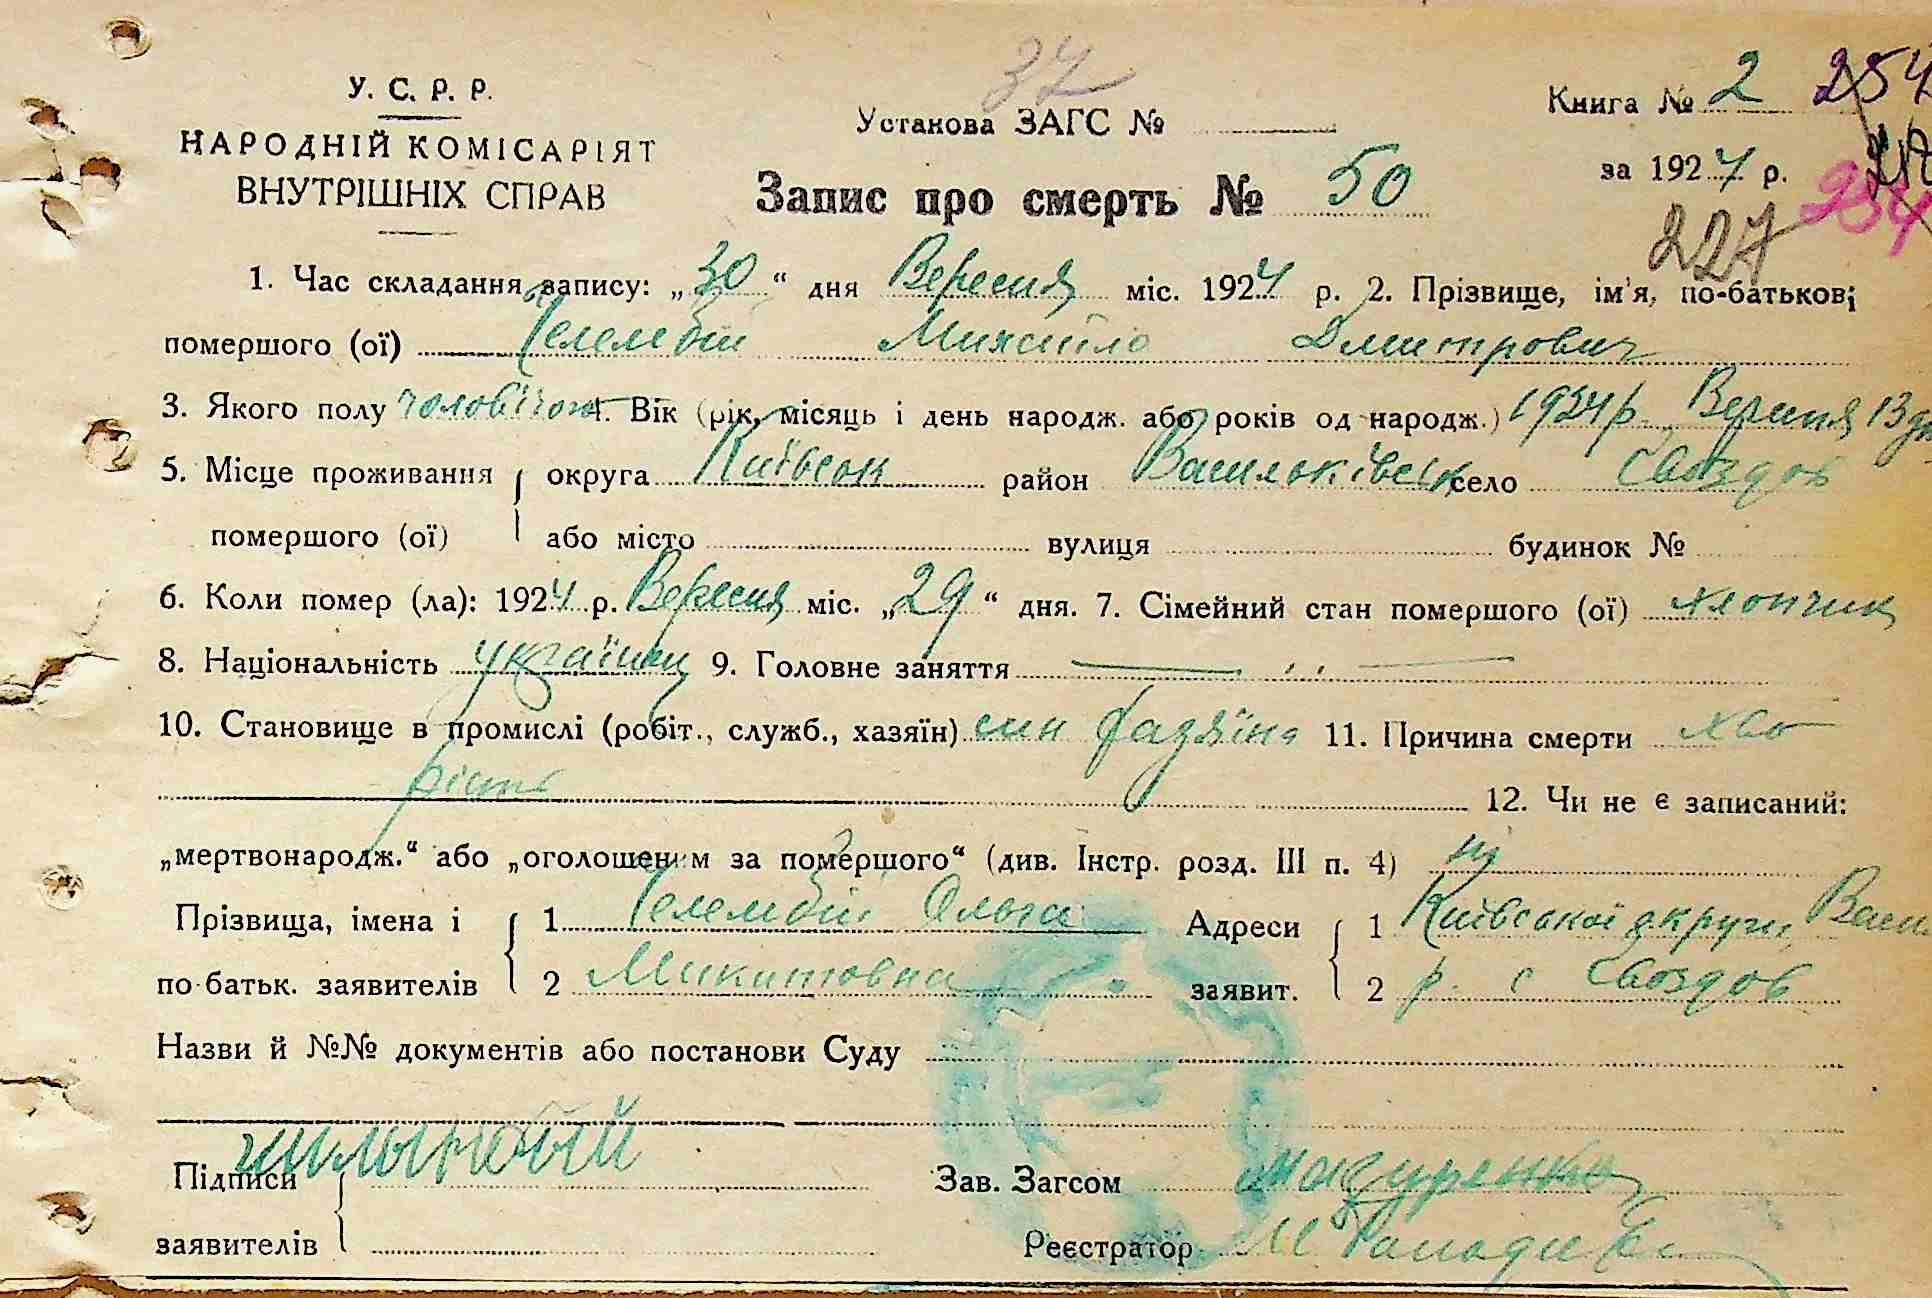 37
У. С. Р. Р.
НАРОДНІЙ КОМІСАРІЯТ
ВНУТРІШНІХ СПРАВ
Установа ЗАГС №
Книга № 2 254
за 1924 р.
Запис про смерть № 50
227
1. Час складання запису: „30“ дня Вересня міс. 1924 р. 2. Прізвище, ім'я, по-батькові
помершого (ої) Михайло Дмитрович
3. Якого полу чоловічого 4. Вік (рік, місяць і день народж. або років од народж.) 1924 р. Вересня 13 дня
5. Місце проживання округа Київськ район Васильківськ село Гвоздов
помершого (ої) або місто вулиця будинок №
6. Коли помер (ла): 1924 р. Вересня міс. „29“ дня. 7. Сімейний стан помершого (ої) хлопчик
8. Національність українец 9. Головне заняття
10. Становище в промислі (робіт., служб., хазяїн) син хазяїна 11. Причина смерти хво
рість 12. Чи не є записаний:
„мертвонародж.“ або „оголошеним за помершого“ (див. Інстр. розд. III п. 4) ні
Прізвища, імена і 1 Ольга Адреси 1 Київської округи, Васи
по-батьк. заявителів 2 Микитовна заявит. 2 р. с Гвоздов
Назви й №№ документів або постанови Суду
Підписи Зав. Загсом Мазуренко
заявителів Реєстратор